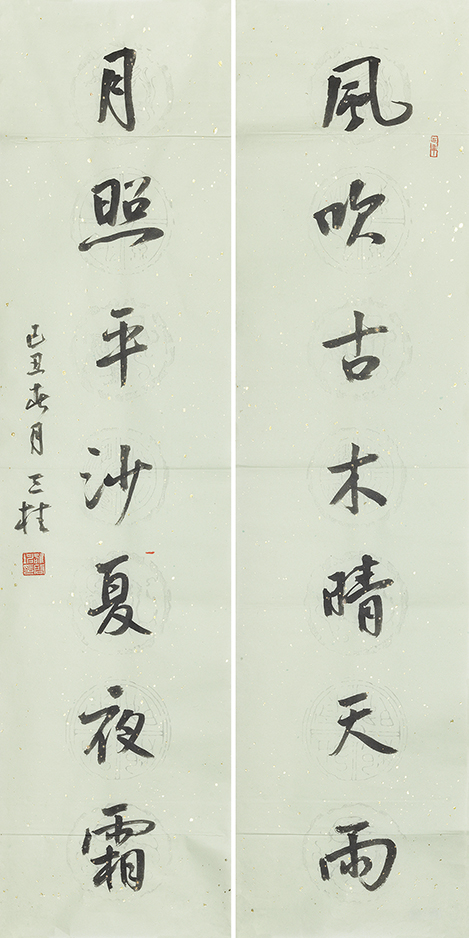 風吹古木晴天雨
月照平沙夏夜霜
己丑春月三桂